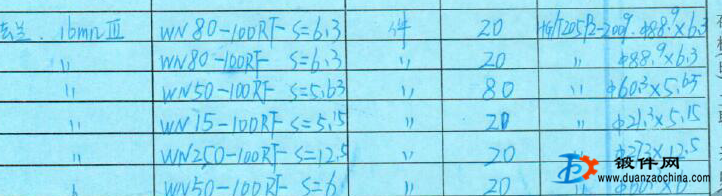 法兰 16mnIII WN80-100RF S=6.3 件 20 HG/T20592-2009 φ88.9×6.3
〃 WN80-100RF S=6.3 〃 20 〃 φ88.9×6.3
〃 WN50-100RF S=5.63 〃 80 〃 φ60.3×5.63
〃 WN15-100RF S=5.15 〃 20 〃 φ21.3×5.15
〃 WN250-100RF S=12.5 〃 20 〃 φ273×12.5
〃 WN50-100RF S=6 〃 20 〃
锻件网
www.duanzaochina.com